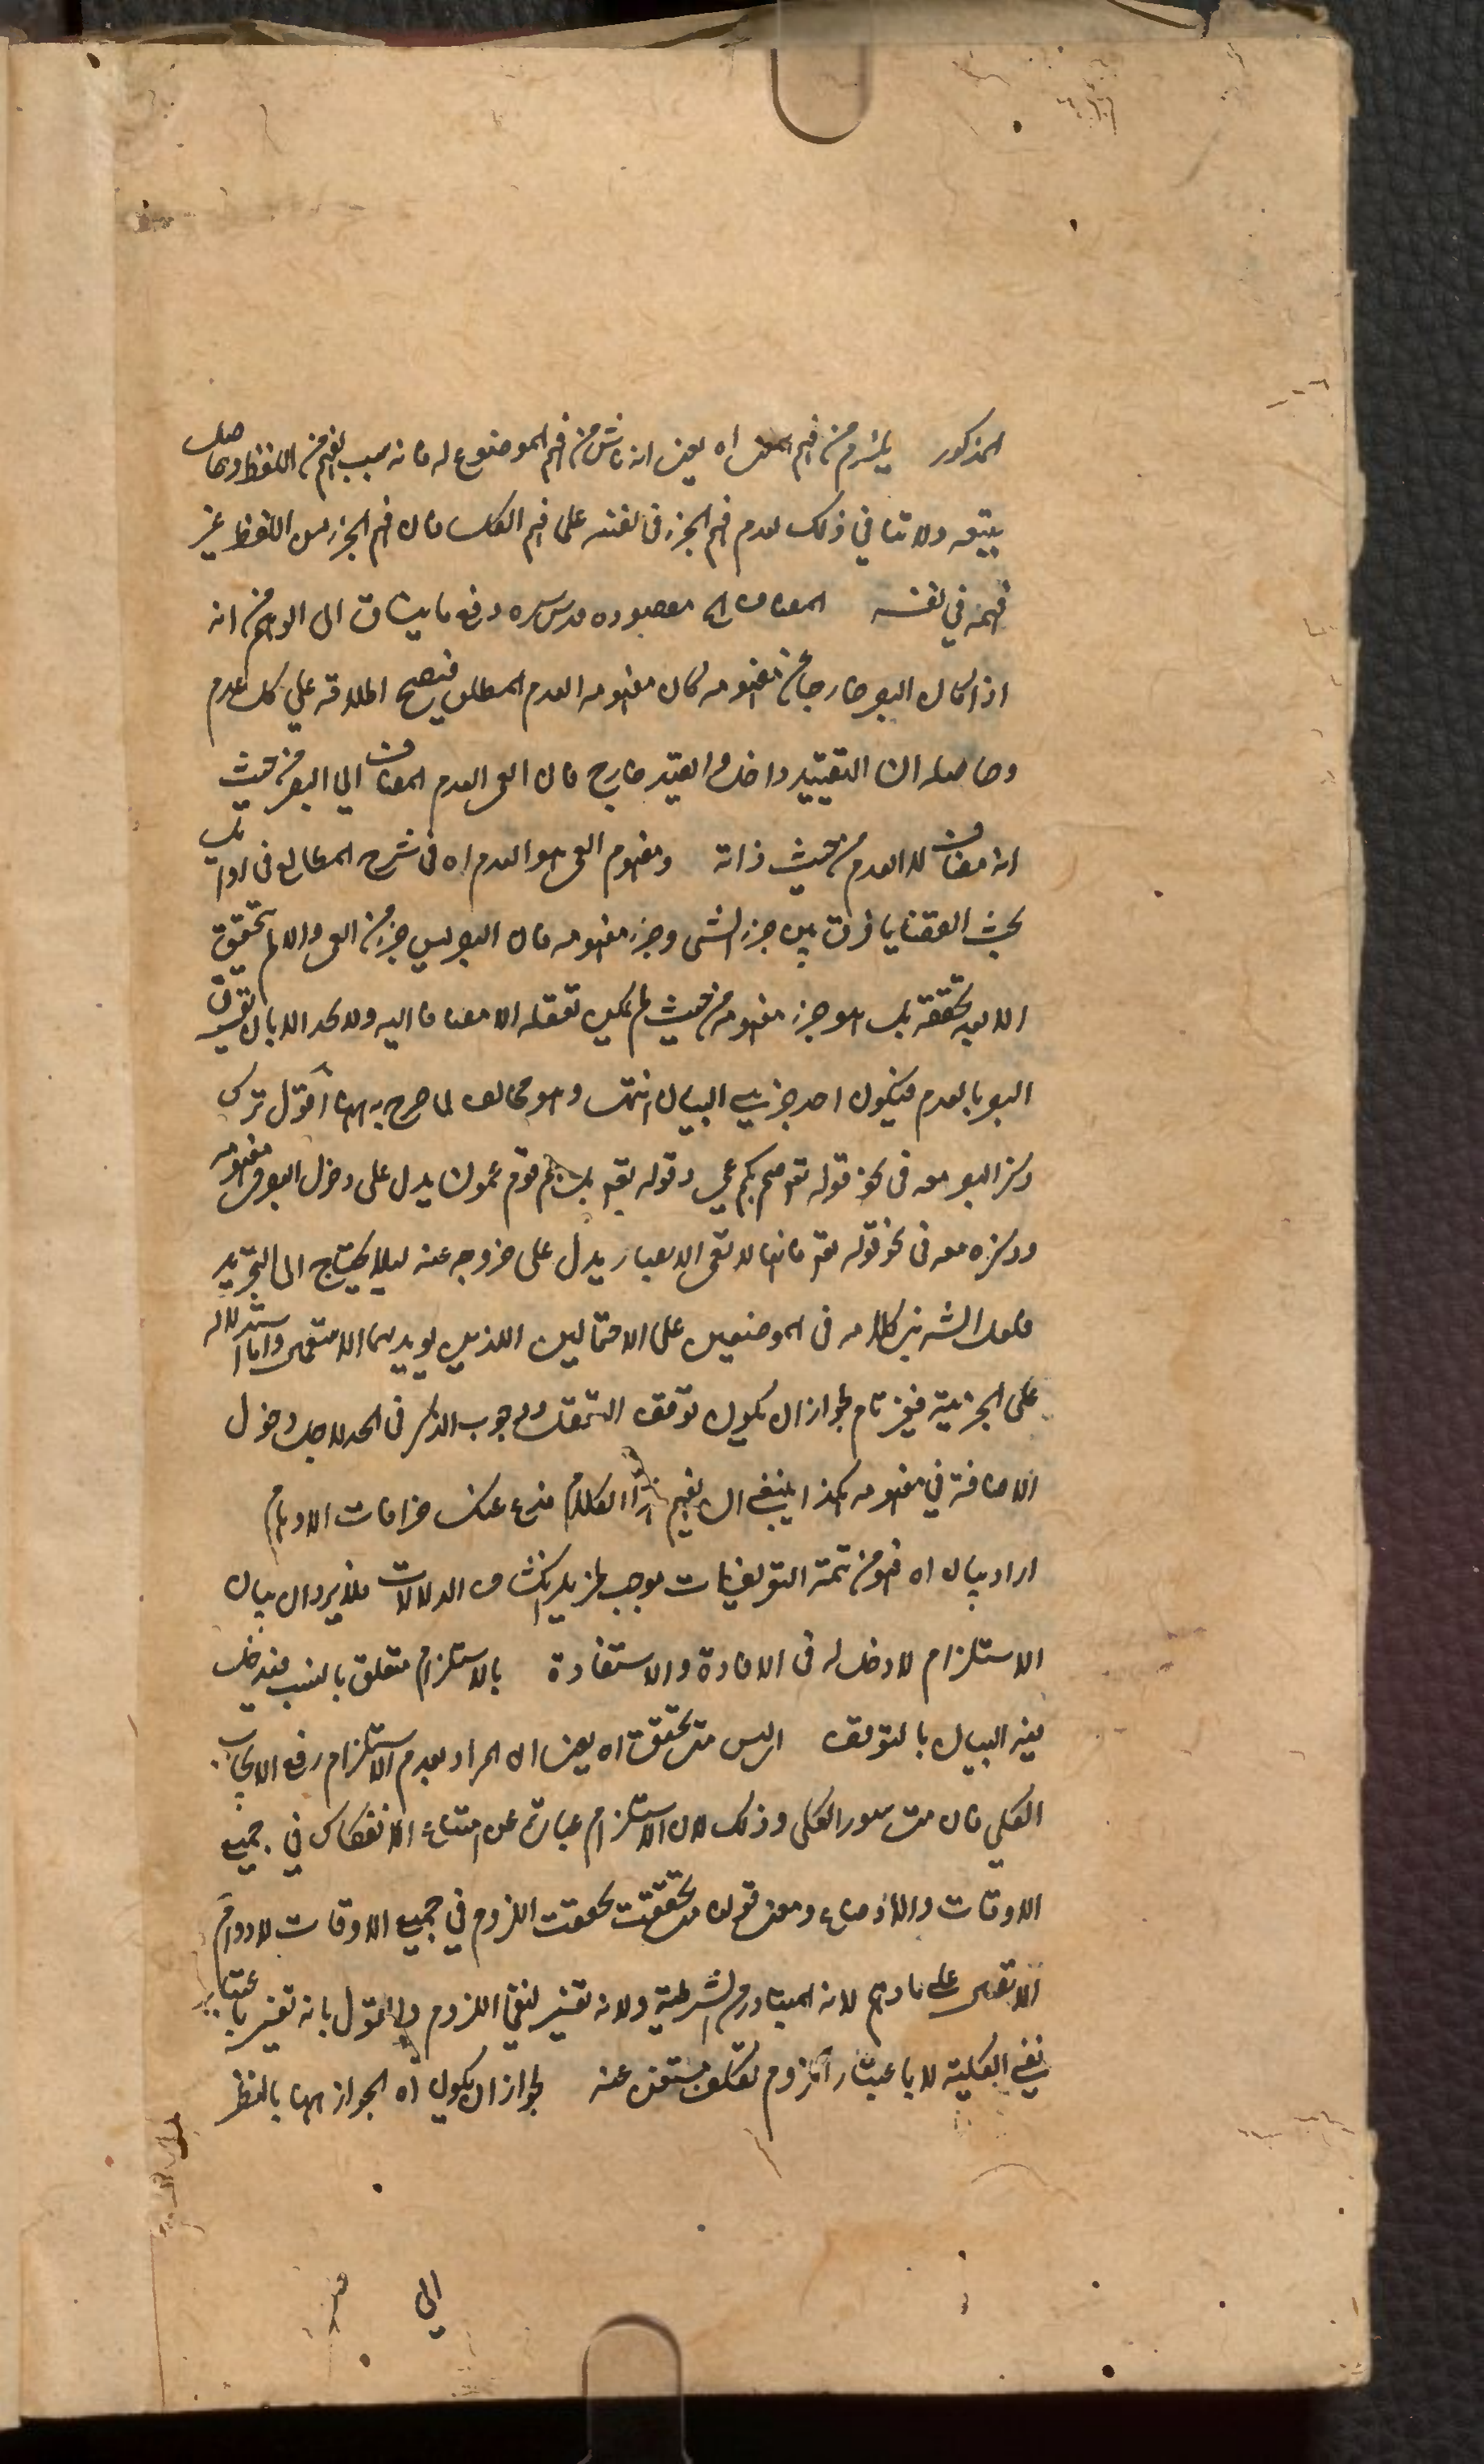 المذكور يلزم من فهم المعنى اه يعني انه ناش من فهم الموضوع له فانه سبب لفهم من اللفظ وحاصل
بتبعه ولا تنافي ذلك لعدم فهم الجزء في نفسه على فهم الكل فان فهم الجزء من اللفظ غير
فهمه في نفسه المضاف الخ مقصوده قدس سره دفع ما يتساق الى الوهم من انه
اذا كان البصر خارجا عن مفهومه كان مفهومه العدم المطلق فيصح اطلاقه على كل عدم
وحاصله ان التقييد داخل والقيد خارج فان العمى العدم المضاف الى البصر من حيث
انه مضاف لا العدم من حيث ذاته ومفهوم العمى هو العدم اه في شرح المطالع في اوائل
بحث القضايا فرق بين جزء الشى وجزء مفهومه فان البصر ليس جزء من العمى والا لم يتحقق
الا بعد تحققه بل هو جزء مفهومه من حيث لم يمكن تعقله الا مضافا اليه ولا يحد الا بان يقرن
البصر بالعدم فيكون احد جزئي البيان انتهى وهو مخالف لما صرح به ههنا اقول ترك
ذكر البصر معه في نحو قوله تعم صم بكم عمي وقوله تعم بل هم قوم عمون يدل على دخول البصر في مفهومه
وذكره معه في نحو قوله تعم فانها لا تعمى الابصار يدل على خروجه عنه لئلا يحتاج الى التجريد
فلعل الش بنى كلامه في الموضعين على الاحتمالين اللذين يويدهما الاستعمال واما استدلاله
على الجزئية فغير تام لجواز ان يكون توقف التعقل ووجوب الذكر في الحد لاجل دخول
الاضافة في مفهومه هكذا ينبغي ان يفهم هذا الكلام فدع عنك خرافات الاوهام
اراد بيان اه فهو من تتمة التعريفات موجب لمزيد انكشاف الدلالات فلا يرد ان بيان
الاستلزام لا دخل له في الافادة والاستفادة بالاستلزام متعلق بالنسب فيدخل
فيه البيان بالتعريف اى ليس متى تحقق اه يعني ان المراد بعدم الاستلزام رفع الايجاب
الكلي فان متى سور الكلي وذلك لان الاستلزام عبارة عن امتناع الانفكاك في جميع
الاوقات والاوضاع ومعنى قوله متى تحققت تحققت اللزوم في جميع الاوقات لا دوام
الاتصال على ما وهم لانه المتبادر من الشرطية ولانه تفسير لنفي اللزوم والقول بانه تفسير باعتبار
نفي الكلية لا باعتبار اللزوم تكلف مستغنى عنه لجواز ان يكون اه الجواز ههنا بالنظر
الى